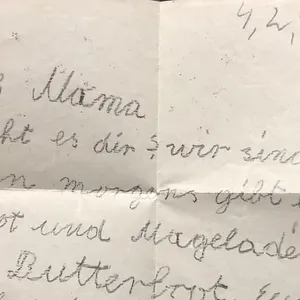 4, 2,
Mama
ht es dir? wir sind
n morgens gibt e
ot und Mageladé
Butterbrot